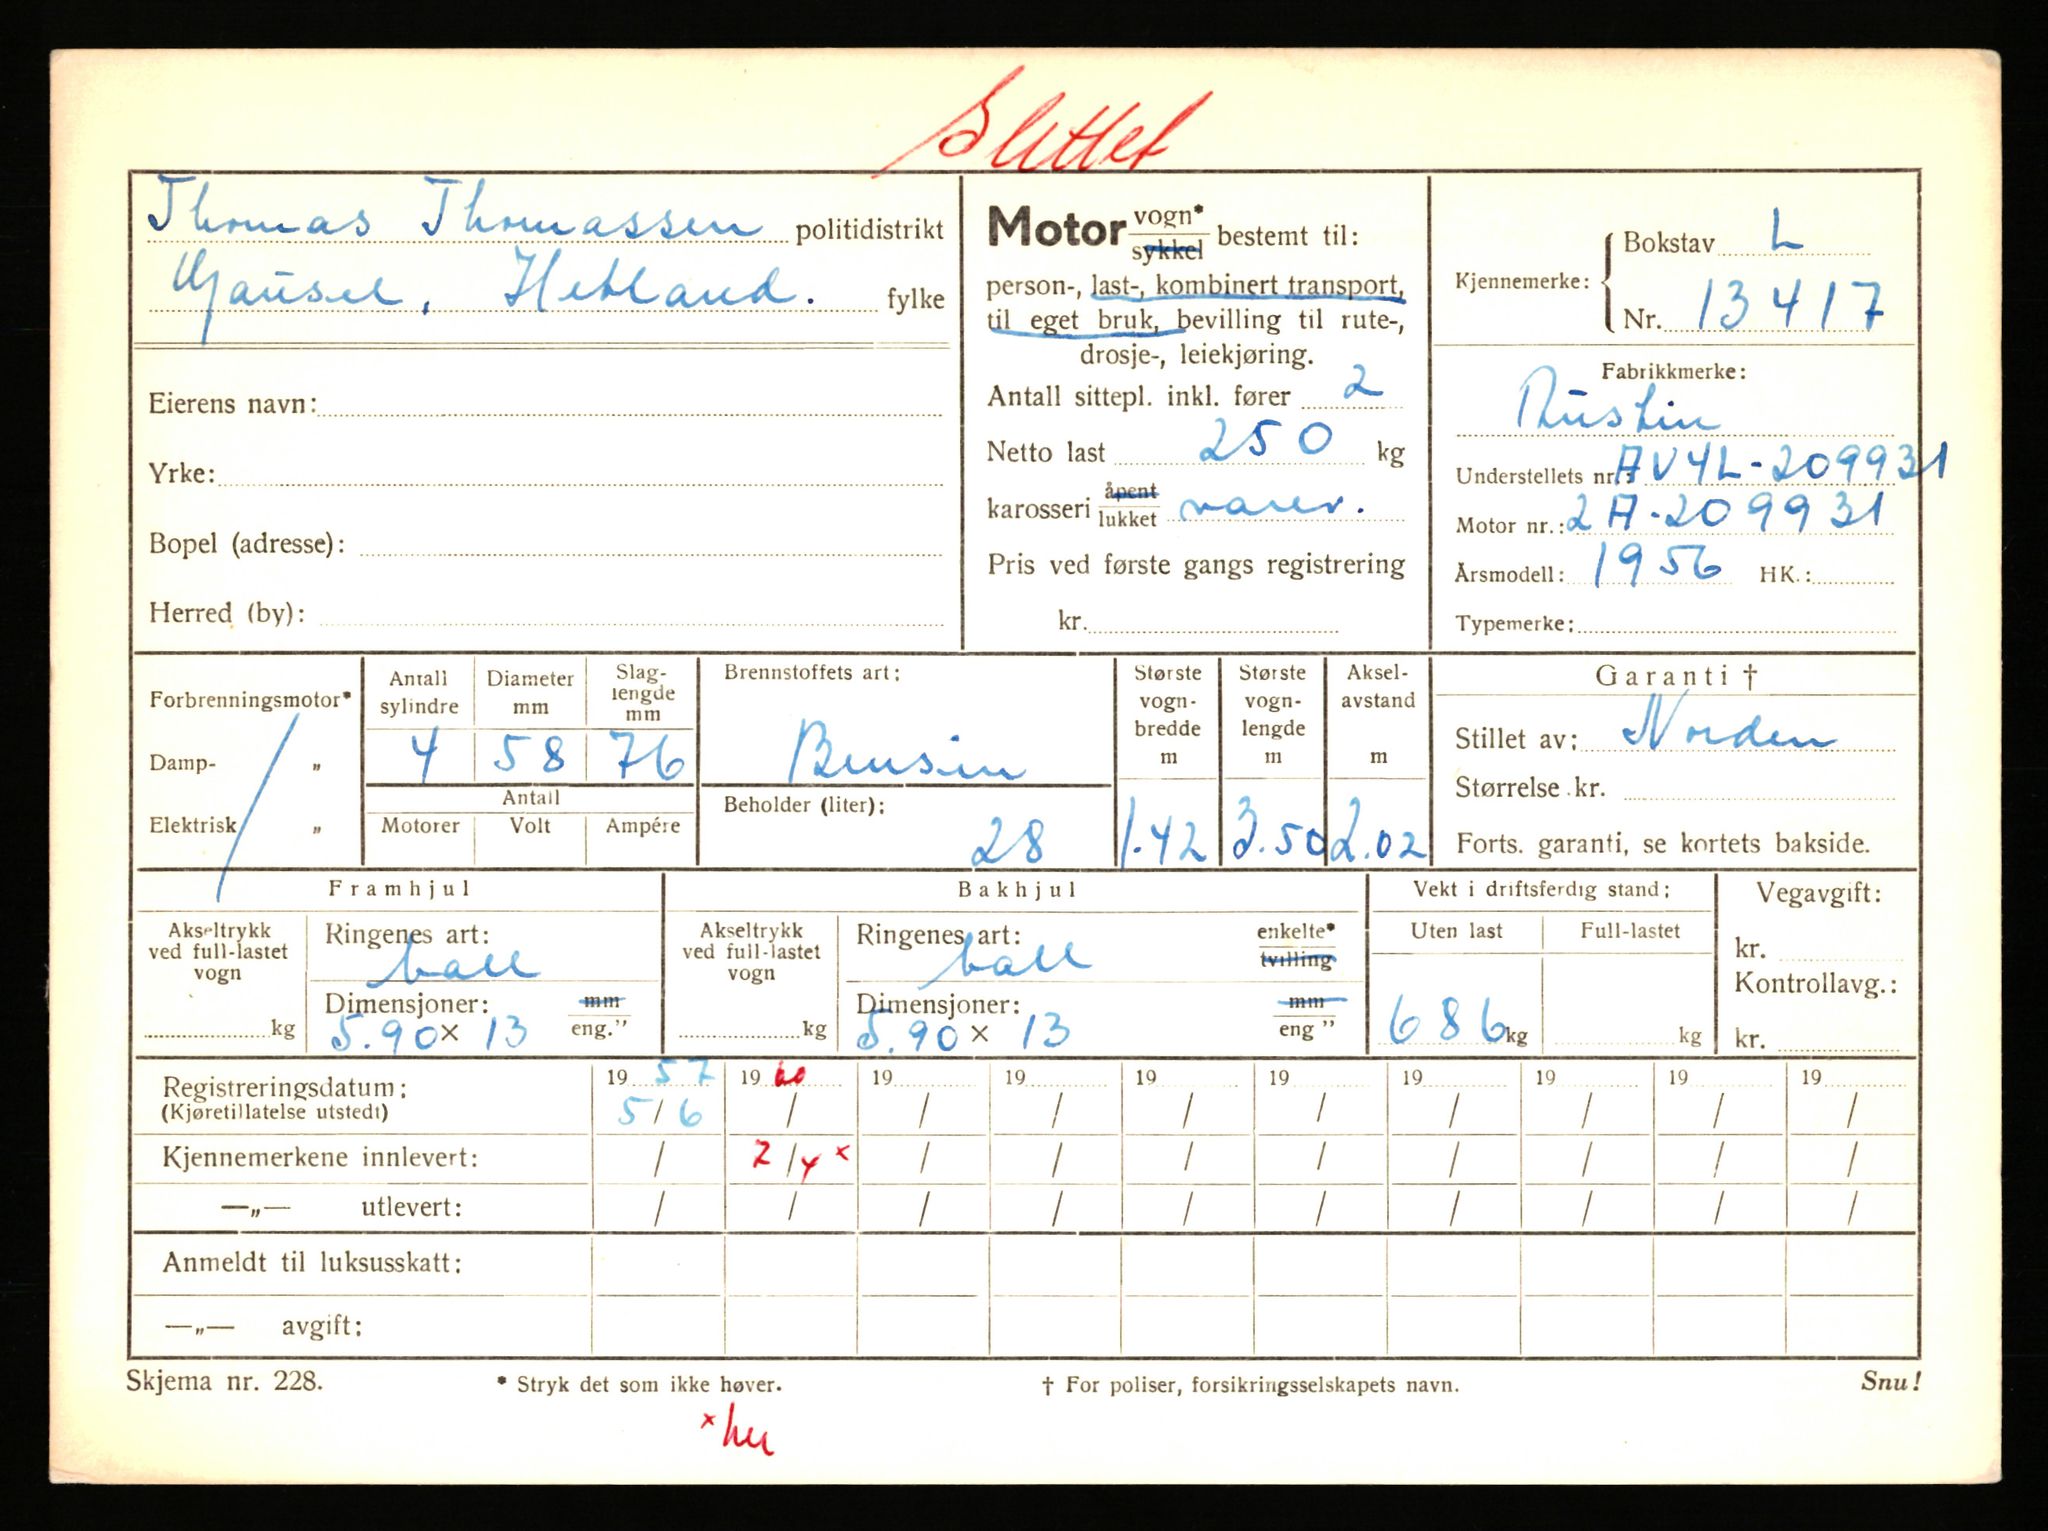 Slettet
Thomas Thomassen politidistrikt
Gausel, Hetland. fylke
Eierens navn:
Yrke:
Bopel (adresse):
Herred (by):
Motor vogn* sykkel bestemt til:
person-, last-, kombinert transport,
til eget bruk, bevilling til rute-,
drosje-, leiekjøring.
Antall sittepl. inkl. fører 2
Netto last 250 kg
karosseri åpent lukket varev.
Pris ved første gangs registrering
kr.
Kjennemerke: Bokstav L
Nr. 13417
Fabrikkmerke:
Austin
Understellets nr.: AV4L-209931
Motor nr.: 2A-209931
Årsmodell: 1956 HK.:
Typemerke:
Forbrenningsmotor*
Damp- „
Elektrisk „
Antall sylindre 4
Diameter mm 58
Slag-lengde mm 76
Antall
Motorer Volt Ampére
Brennstoffets art:
Bensin
Beholder (liter):
28
Største vogn-bredde m 1.42
Største vogn-lengde m 3.50
Aksel-avstand m 2.02
Garanti †
Stillet av: Norden
Størrelse kr.
Forts. garanti, se kortets bakside.
Framhjul
Akseltrykk ved full-lastet vogn kg
Ringenes art:
ball
Dimensjoner: mm
5.90 x 13 eng."
Bakhjul
Akseltrykk ved full-lastet vogn kg
Ringenes art: enkelte*
ball tvilling
Dimensjoner: mm
5.90 x 13 eng "
Vekt i driftsferdig stand:
Uten last Full-lastet
686 kg kg
Vegavgift:
kr.
Kontrollavg.:
kr.
Registreringsdatum: 19 57 19 60 19 19 19 19 19 19 19 19
(Kjøretillatelse utstedt) 5/6 / / / / / / / / /
Kjennemerkene innlevert: / 2/4 x / / / / / / / /
—„— utlevert: / / / / / / / / / /
Anmeldt til luksusskatt:
—„— avgift:
Skjema nr. 228. * Stryk det som ikke høver. † For poliser, forsikringsselskapets navn. Snu!
x her